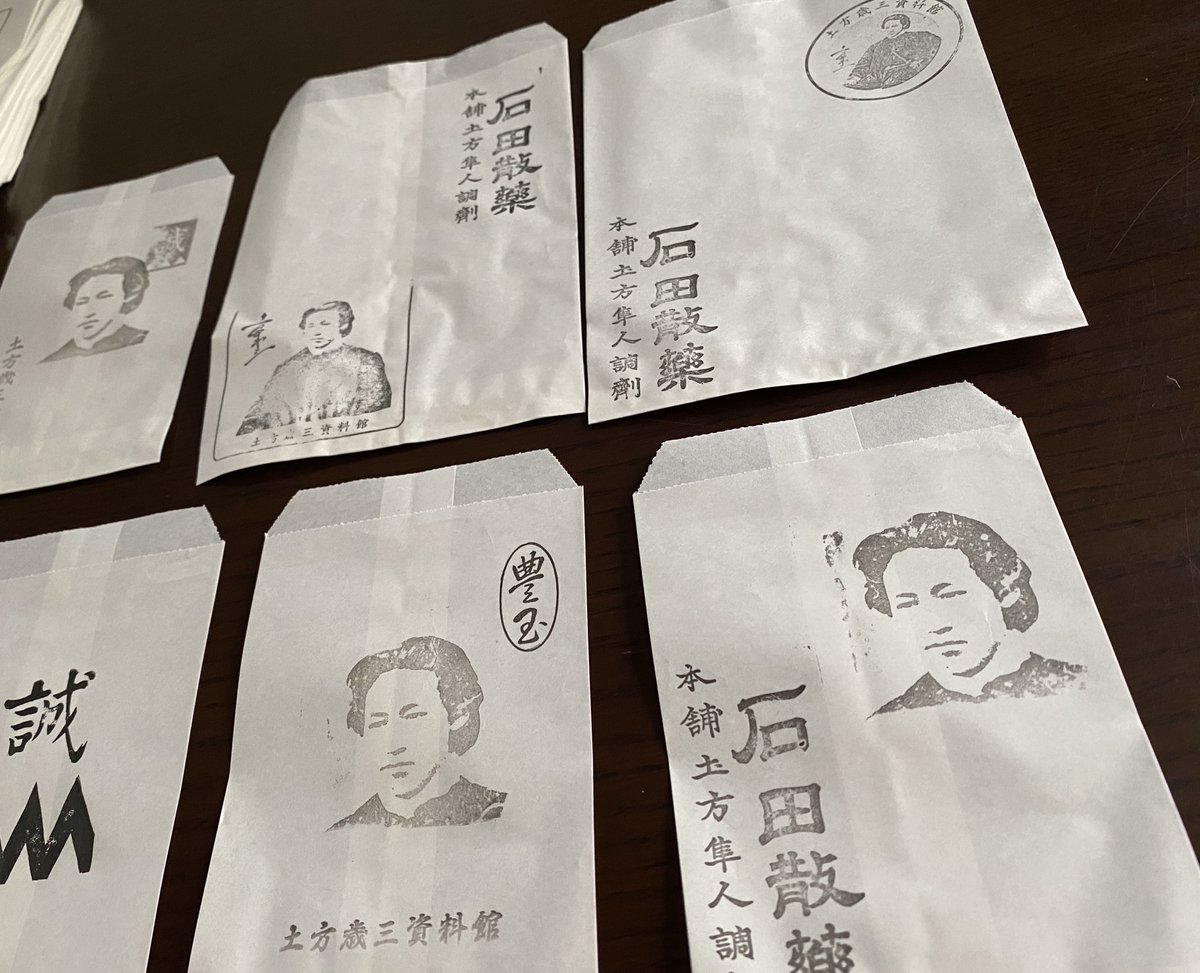 誠
土方歳三
石田散藥
本舗土方隼人調劑
土方歳三資料館
土方歳三資料館
石田散藥
本舗土方隼人調劑
誠
豊玉
土方歳三資料館
石田散藥
本舗土方隼人調